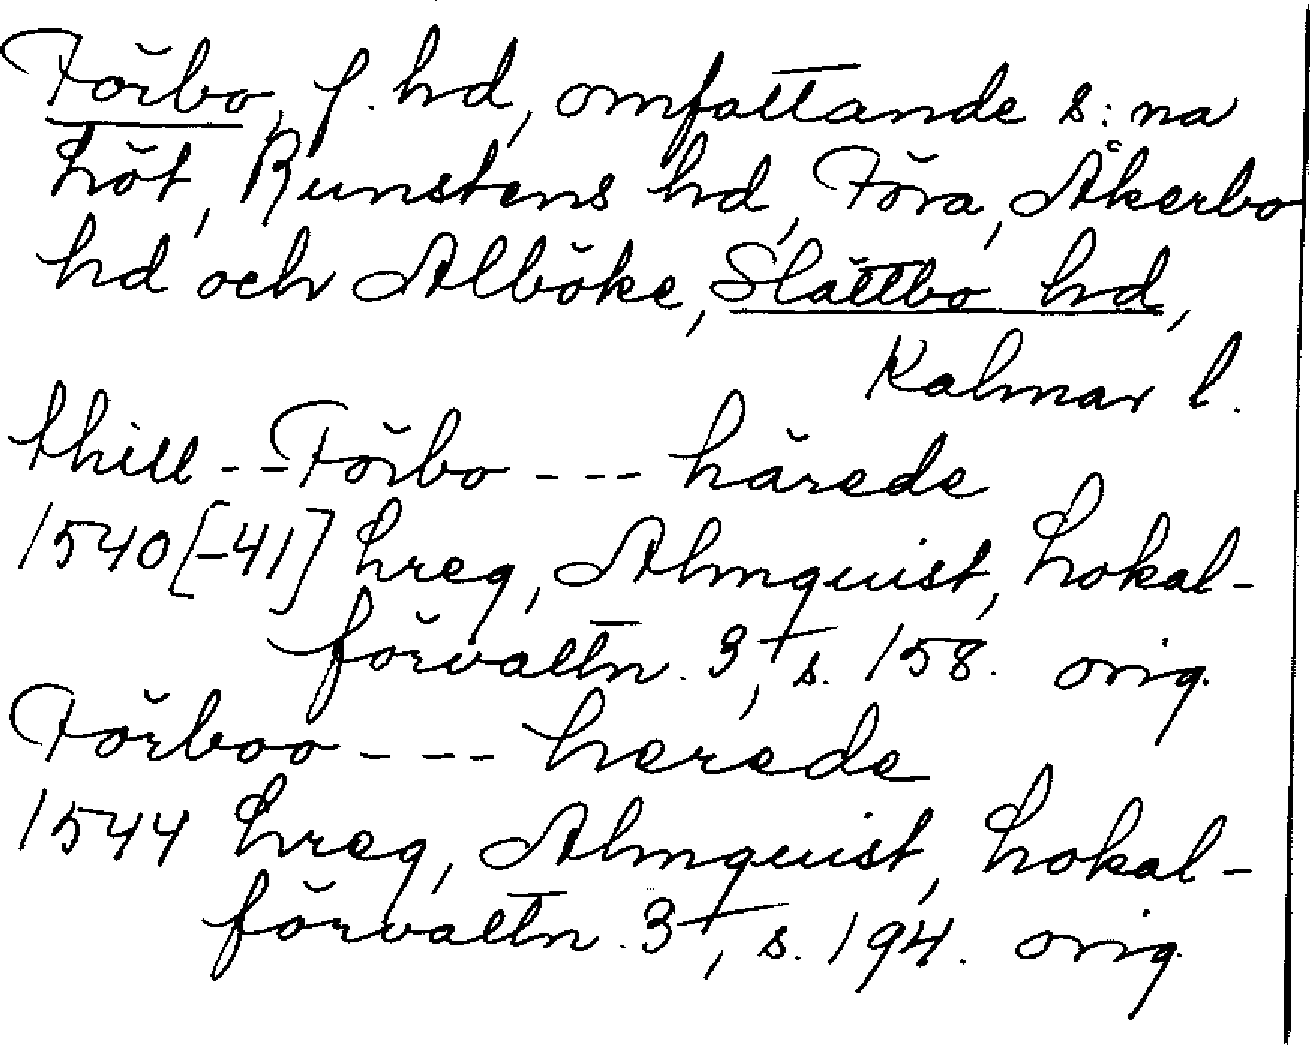 Förbo, f. hd, omfattande s:na
Löt, Runstens hd, Föra, Åkerbo
hd och Alböke, Slättbo hd,
Kalmar l.
thill - - Förbo - - - härede
1540[-41] Lreg, Almquist, Lokal-
förvaltn. 3, s. 158. orig.
Förboo - - - herede
1544 Lreg, Almquist, Lokal-
förvaltn. 3, s. 194. orig.